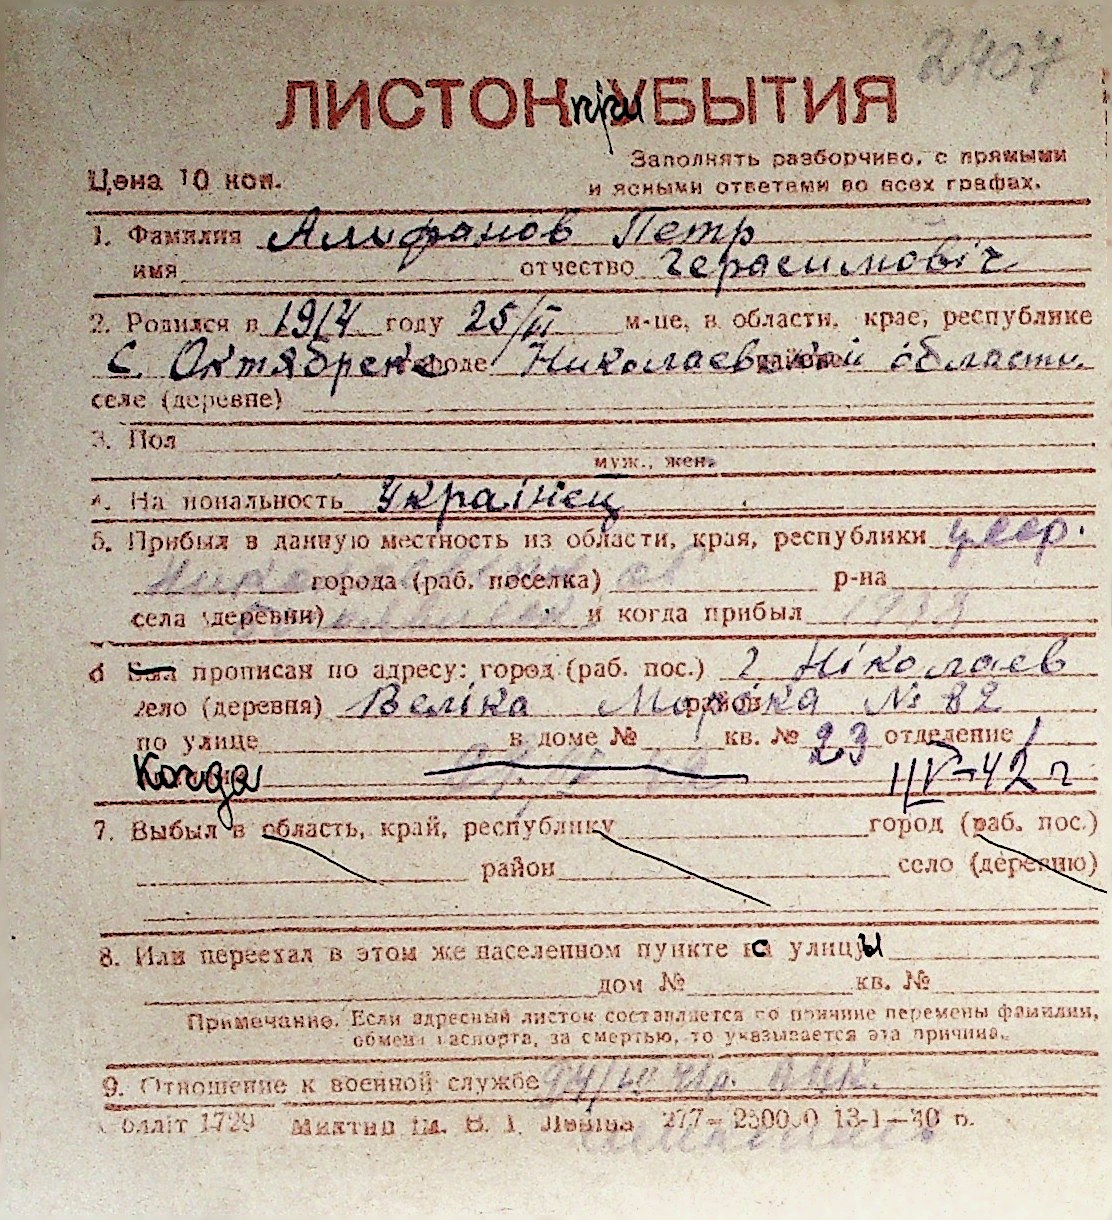 2407
ЛИСТОК при УБЫТИЯ
Заполнять разборчиво, с прямыми
Цена 10 коп.
и ясными ответами во всех графах.
1. Фамилия Алифанов Петр
имя отчество Герасимовіч
2. Родился в 1914 году 25/VI м-це, в области, крае, республике
С. Октябрске городе Николаевской области.
селе (деревне)
3. Пол
муж., жен.
4. Национальность Украінец
5. Прибыл в данную местность из области, края, республики
города (раб. поселка) р-на
села (деревни) и когда прибыл 1933
6 Был прописан по адресу: город (раб. пос.) г. Ніколаев
село (деревня) Веліка Морска район № 82
по улице в доме № кв. № 23 отделение 1
Когда 1/IV-42 г
7. Выбыл в область, край, республику город (раб. пос.)
район село (деревню)
8. Или переехал в этом же населенном пункте с улицы
дом № кв. №
Примечание. Если адресный листок составляется по причине перемены фамилии,
обмена паспорта, за смертью, то указывается эта причина.
9. Отношение к военной службе
Облліт 1729 Миктип ім. В. І. Леніна 277— 250000 13-1—40 р.